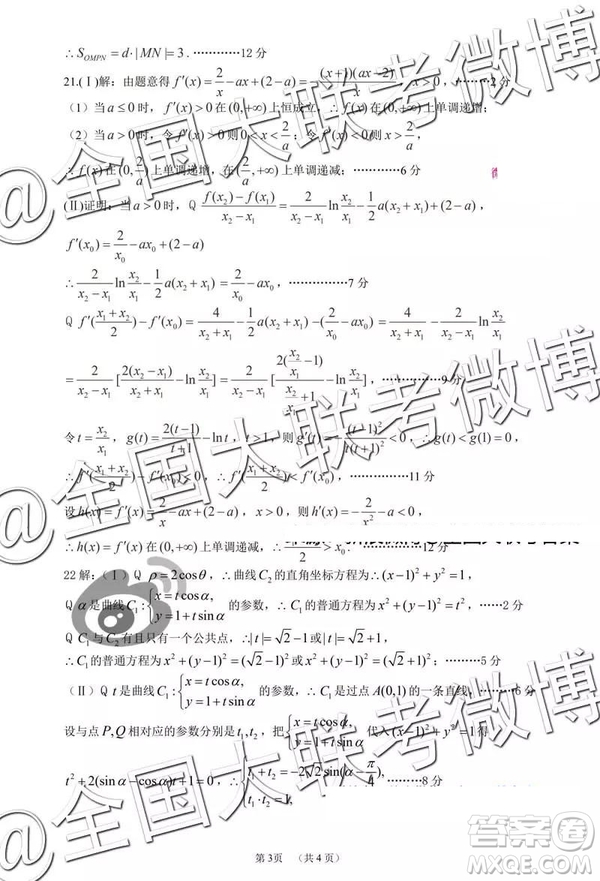 ∴ S_{OMPN} = d·|MN| = 3. …………12 分
21.(Ⅰ)解：由题意得 f′(x) = 2/x − ax + (2−a) = −(x+1)(ax−2)/x，x > 0，………2 分
（1）当 a ≤ 0 时，f′(x) > 0 在 (0,+∞) 上恒成立，∴ f(x) 在 (0,+∞) 上单调递增；
（2）当 a > 0 时，令 f′(x) > 0 则 0 < x < 2/a；令 f′(x) < 0 则 x > 2/a，
∴ f(x) 在 (0, 2/a) 上单调递增，在 (2/a, +∞) 上单调递减；…………6 分
(Ⅱ)证明：当 a > 0 时，Q (f(x₂)−f(x₁))/(x₂−x₁) = 2/(x₂−x₁) ln x₂/x₁ − 1/2 a(x₂+x₁) + (2−a)，
f′(x₀) = 2/x₀ − ax₀ + (2−a)
∴ 2/(x₂−x₁) ln x₂/x₁ − 1/2 a(x₂+x₁) = 2/x₀ − ax₀，……………7 分
Q f′((x₁+x₂)/2) − f′(x₀) = 4/(x₁+x₂) − 1/2 a(x₁+x₂) − (2/x₀ − ax₀) = 4/(x₁+x₂) − 2/(x₂−x₁) ln x₂/x₁
= 2/(x₂−x₁) [2(x₂−x₁)/(x₂+x₁) − ln x₂/x₁] = 2/(x₂−x₁) [2(x₂/x₁ − 1)/(x₂/x₁ + 1) − ln x₂/x₁]，……………9 分
令 t = x₂/x₁，g(t) = 2(t−1)/(t+1) − ln t，t > 1，则 g′(t) = −(t−1)²/(t(t+1)²) < 0，∴ g(t) < g(1) = 0，
∴ f′((x₁+x₂)/2) − f′(x₀) < 0，∴ f′((x₁+x₂)/2) < f′(x₀)，…………11 分
设 h(x) = f′(x) = 2/x − ax + (2−a)，x > 0，则 h′(x) = −2/x² − a < 0，
∴ h(x) = f′(x) 在 (0,+∞) 上单调递减，∴ (x₁+x₂)/2 > x₀. …………12 分
22 解：(Ⅰ) Q ρ = 2cosθ，∴ 曲线 C₂ 的直角坐标方程为 ∴ (x−1)² + y² = 1，
Q α 是曲线 C₁：{x = t cosα, y = 1+t sinα 的参数，∴ C₁ 的普通方程为 x² + (y−1)² = t²，……2 分
Q C₁ 与 C₂ 有且只有一个公共点，∴ |t| = √2−1 或 |t| = √2+1，
∴ C₁ 的普通方程为 x² + (y−1)² = (√2−1)² 或 x² + (y−1)² = (√2+1)²；………5 分
(Ⅱ) Q t 是曲线 C₁：{x = t cosα, y = 1+t sinα 的参数，∴ C₁ 是过点 A(0,1) 的一条直线，………6 分
设与点 P,Q 相对应的参数分别是 t₁,t₂，把 {x = t cosα, y = 1+t sinα 代入 (x−1)² + y² = 1 得
t² + 2(sinα − cosα)t + 1 = 0，∴ {t₁+t₂ = −2√2 sin(α − π/4), t₁·t₂ = 1, ………8 分
第 3页 （共 4 页）
@全国大联考微博
@全国大联考微博
@全国大联考微博
答案卷